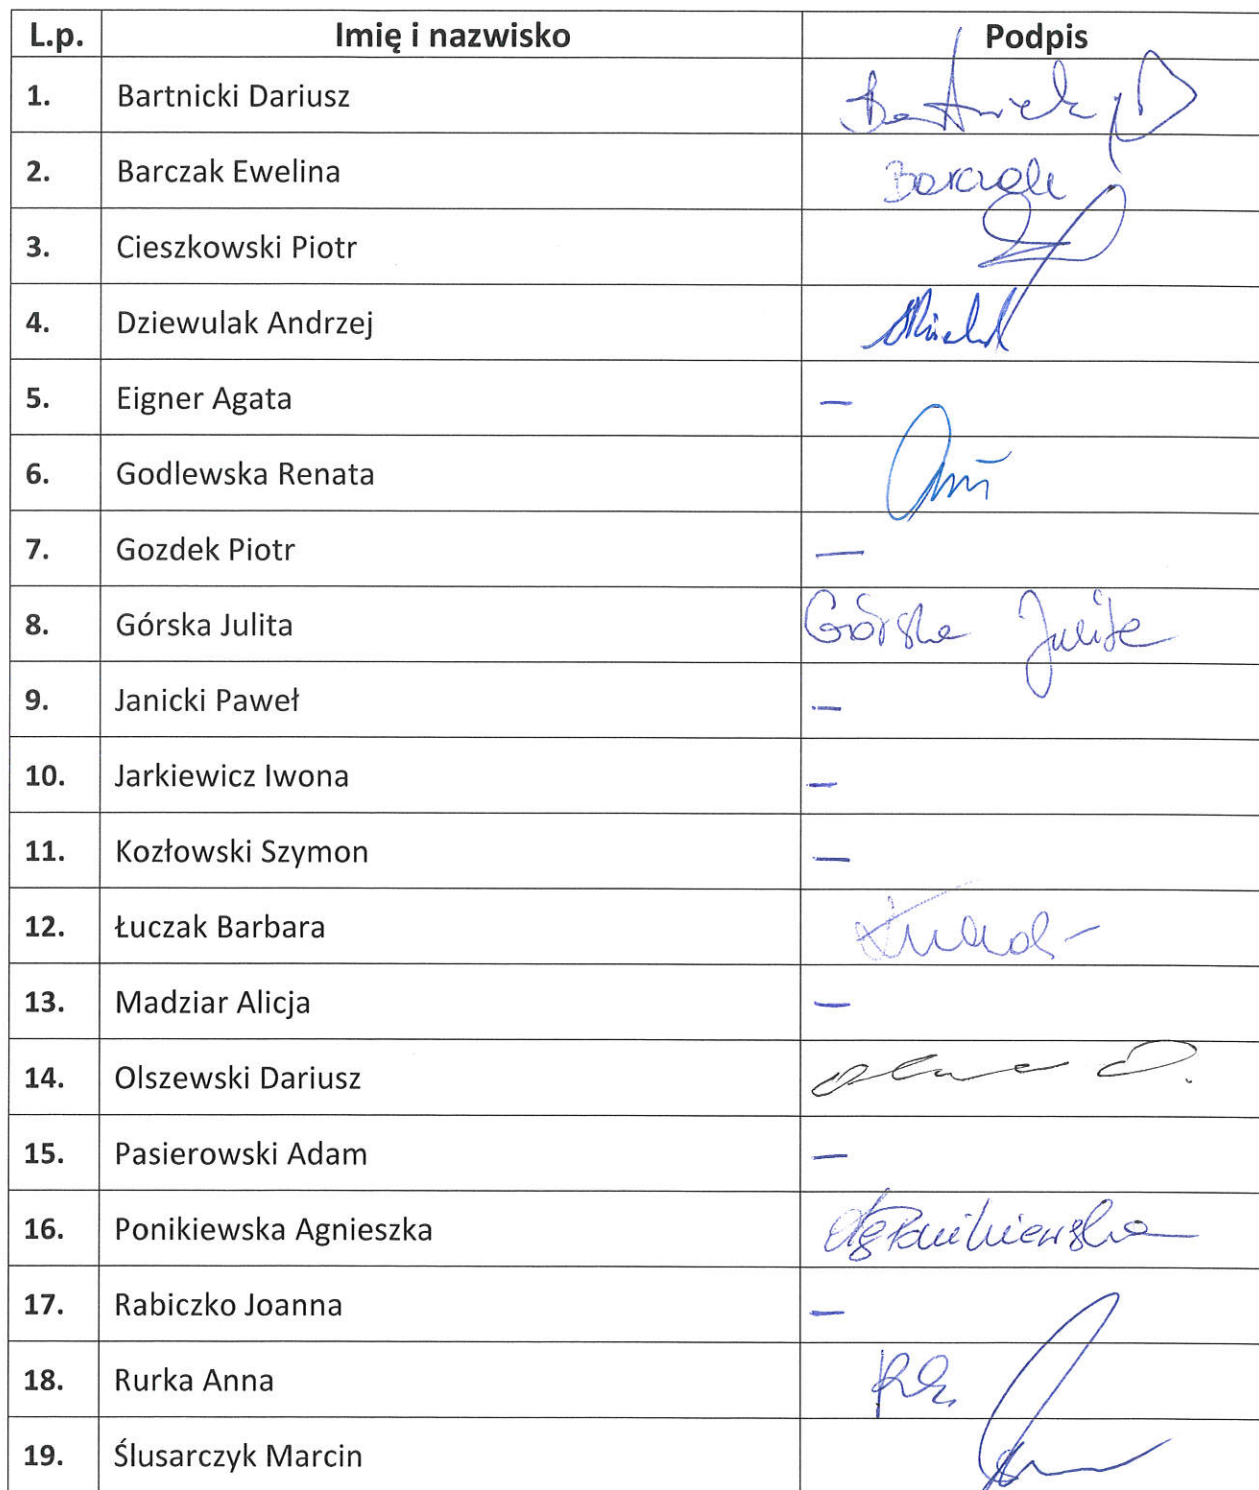 L.p. Imię i nazwisko Podpis
1. Bartnicki Dariusz
2. Barczak Ewelina Barczak
3. Cieszkowski Piotr
4. Dziewulak Andrzej
5. Eigner Agata —
6. Godlewska Renata
7. Gozdek Piotr —
8. Górska Julita Górska Julita
9. Janicki Paweł —
10. Jarkiewicz Iwona —
11. Kozłowski Szymon —
12. Łuczak Barbara
13. Madziar Alicja —
14. Olszewski Dariusz
15. Pasierowski Adam —
16. Ponikiewska Agnieszka AgPonikiewska
17. Rabiczko Joanna —
18. Rurka Anna
19. Ślusarczyk Marcin